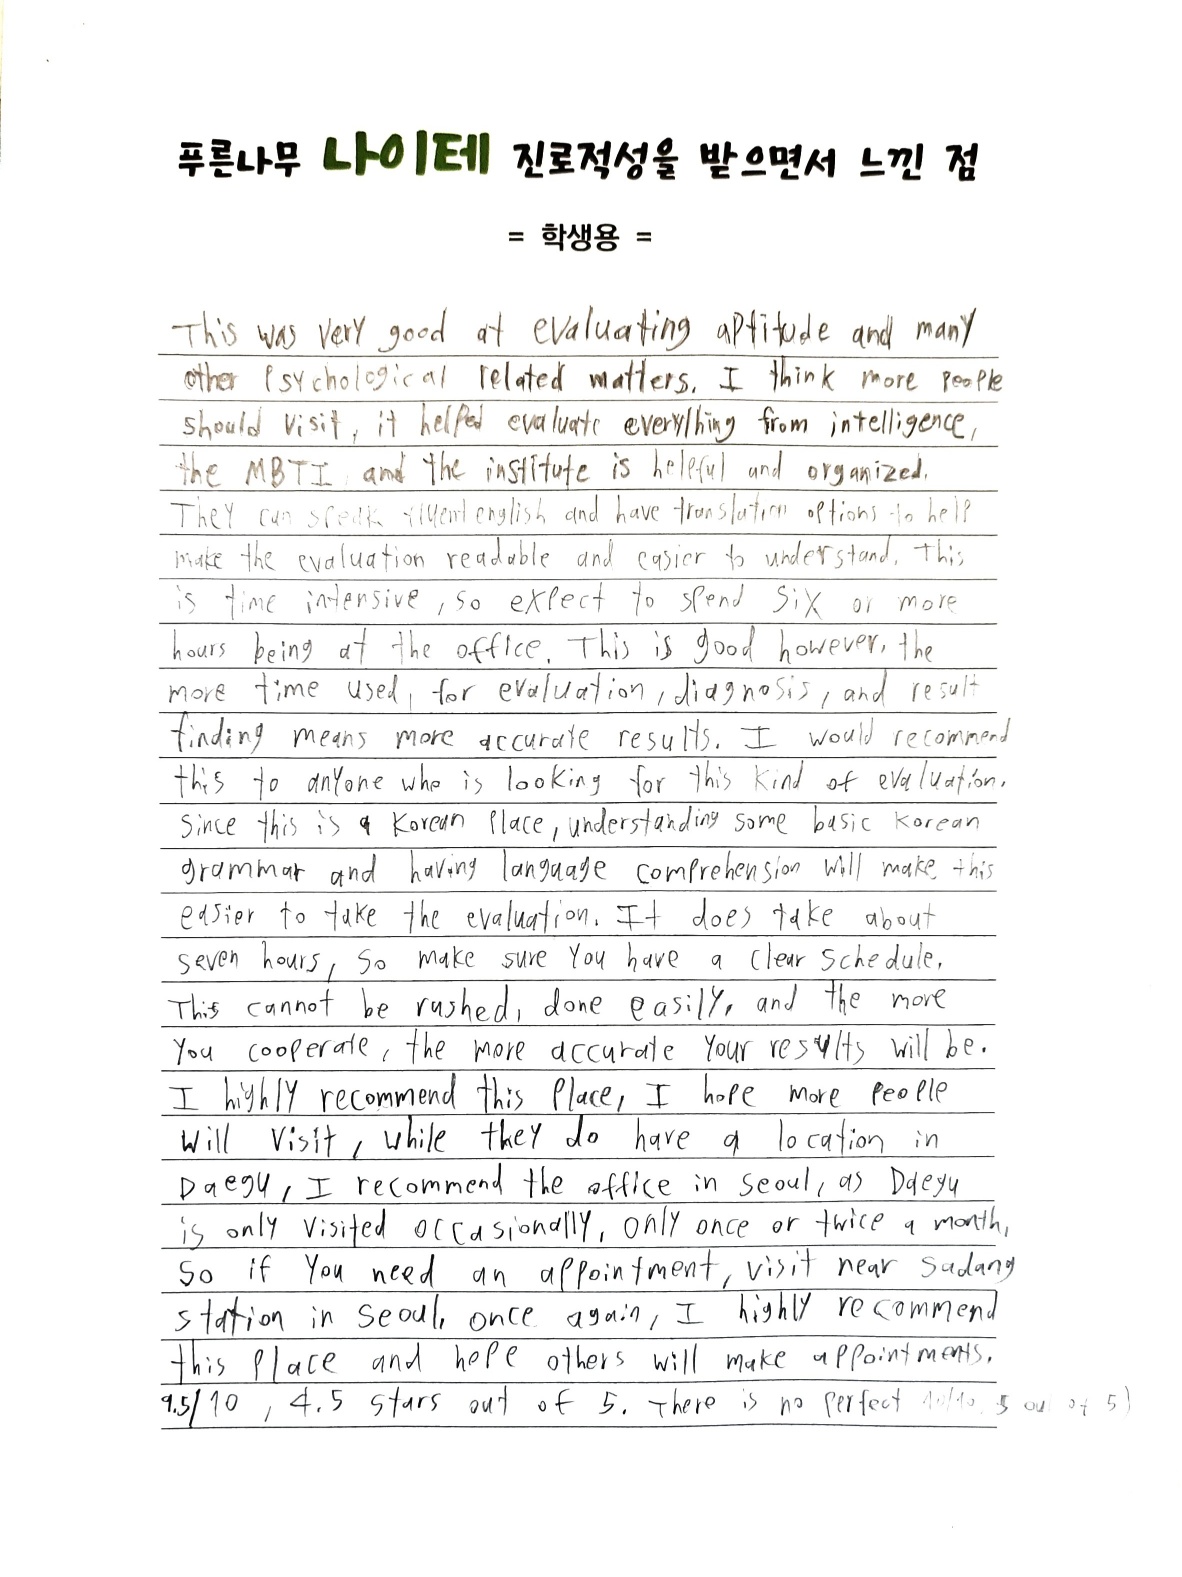 푸른나무 나이테 진로적성을 받으면서 느낀 점
= 학생용 =
This was very good at evaluating aptitude and many
other psychological related matters. I think more people
should visit, it helped evaluate everything from intelligence,
the MBTI and the institute is helpful and organized.
They can speak fluent english and have translation options to help
make the evaluation readable and easier to understand. This
is time intensive, so expect to spend six or more
hours being at the office. This is good however, the
more time used, for evaluation, diagnosis, and result
finding means more accurate results. I would recommend
this to anyone who is looking for this kind of evaluation.
Since this is a Korean place, understanding some basic Korean
grammar and having language comprehension will make this
easier to take the evaluation. It does take about
seven hours, so make sure you have a clear schedule.
This cannot be rushed, done easily, and the more
you cooperate, the more accurate your results will be.
I highly recommend this place, I hope more people
will visit, while they do have a location in
Daegu, I recommend the office in Seoul, as Daegu
is only visited occasionally, only once or twice a month,
So if you need an appointment, visit near Sadang
station in Seoul, once again, I highly recommend
this place and hope others will make appointments.
9.5/10, 4.5 stars out of 5. There is no perfect 10/10, 5 out of 5)